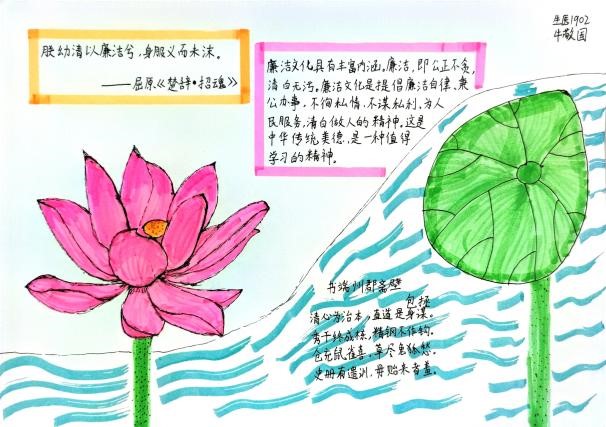 生医1902
牛敬国
朕幼清以廉洁兮，身服义而未沫。
——屈原《楚辞·招魂》
廉洁文化具有丰富内涵。廉洁，即公正不贪，
清白无污。廉洁文化是提倡廉洁自律，秉
公办事，不徇私情，不谋私利，为人
民服务，清白做人的精神。这是
中华传统美德，是一种值得
学习的精神。
书端州郡斋壁
包拯
清心为治本，直道是身谋。
秀干终成栋，精钢不作钩。
仓充鼠雀喜，草尽兔狐愁。
史册有遗训，毋贻来者羞。